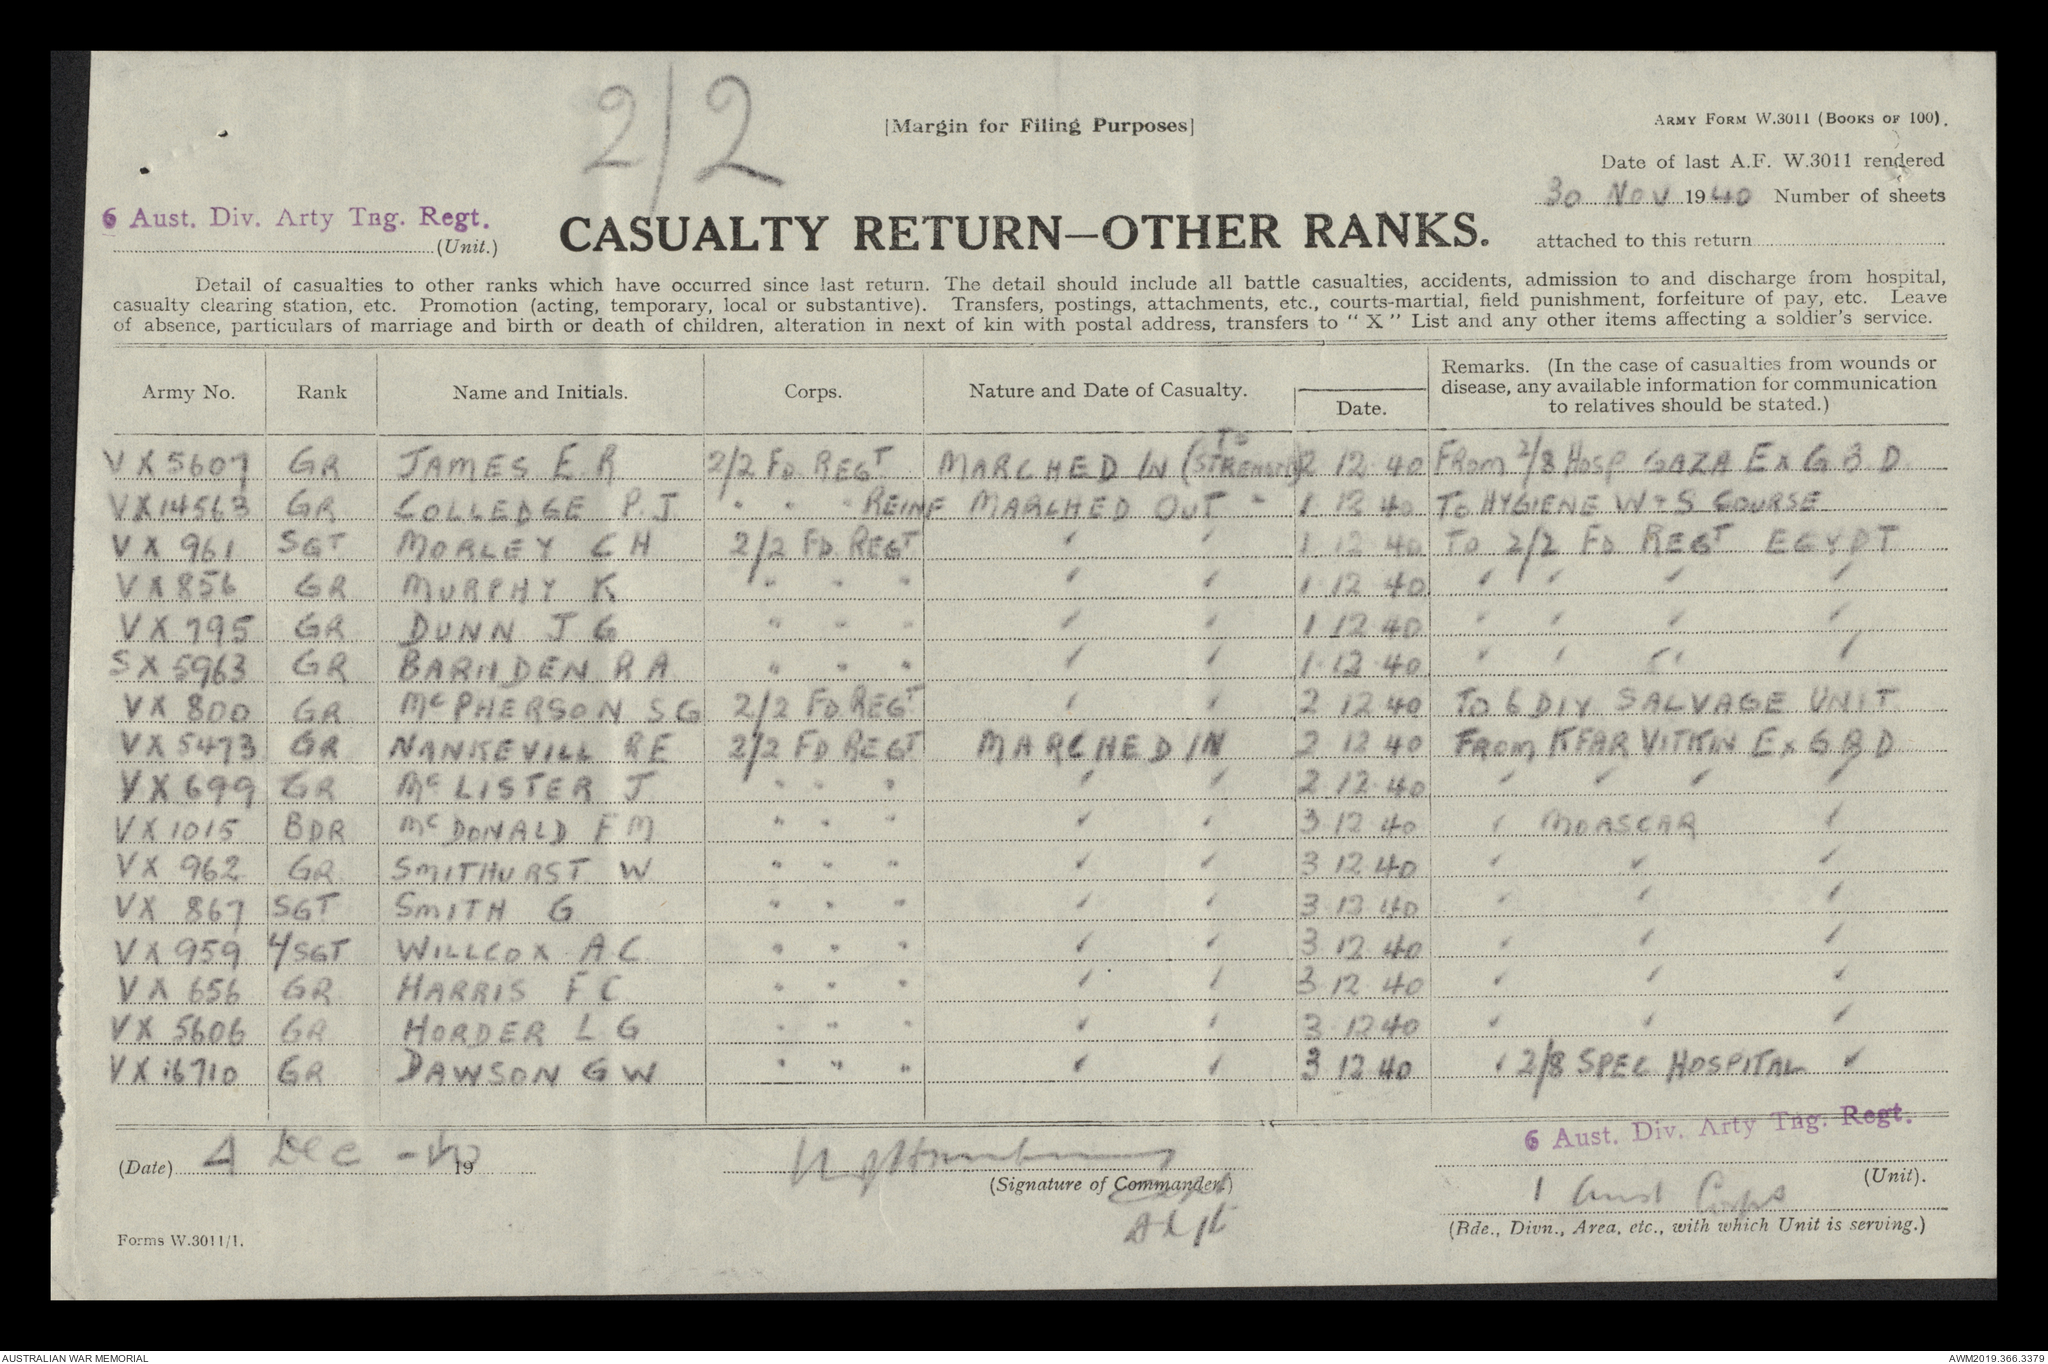 2/2
[Margin for Filing Purposes]
ARMY FORM W.3011 (BOOKS OF 100).
Date of last A.F. W.3011 rendered
30 NOV 1940 Number of sheets
attached to this return
6 Aust. Div. Arty Tng. Regt.
(Unit.)
CASUALTY RETURN—OTHER RANKS.
Detail of casualties to other ranks which have occurred since last return. The detail should include all battle casualties, accidents, admission to and discharge from hospital,
casualty clearing station, etc. Promotion (acting, temporary, local or substantive). Transfers, postings, attachments, etc., courts-martial, field punishment, forfeiture of pay, etc. Leave
of absence, particulars of marriage and birth or death of children, alteration in next of kin with postal address, transfers to "X" List and any other items affecting a soldier's service.
Army No. Rank Name and Initials. Corps. Nature and Date of Casualty. Date. Remarks. (In the case of casualties from wounds or
disease, any available information for communication
to relatives should be stated.)
VX5607 GR JAMES E R 2/2 FD REGT MARCHED IN (TO STRENGTH) 2 12 40 FROM 2/8 HOSP GAZA EX G B D
VX14563 GR COLLEDGE P.J " " " REINF MARCHED OUT " 1 12 40 TO HYGIENE W+S COURSE
VX 961 SGT MORLEY C H 2/2 FD REGT " " 1 12 40 TO 2/2 FD REGT EGYPT
VX856 GR MURPHY K " " " " " 1 12 40 " " " "
VX795 GR DUNN J G " " " " " 1 12 40 " " " "
SX5963 GR BARNDEN R A " " " " " 1 12 40 " " " "
VX 800 GR McPHERSON S G 2/2 FD REGT " " 2 12 40 TO 6 DIV SALVAGE UNIT
VX5473 GR NANKEVILL R E 2/2 FD REGT MARCHED IN 2 12 40 FROM KFAR VITKIN EX G B D
VX699 GR McLISTER J " " " " " 2 12 40 " " " "
VX1015 BDR McDONALD F M " " " " " 3 12 40 " MOASCAR "
VX 962 GR SMITHURST W " " " " " 3 12 40 " " "
VX 867 SGT SMITH G " " " " " 3 12 40 " " "
VX 959 L/SGT WILLCOX A C " " " " " 3 12 40 " " "
VX 656 GR HARRIS F C " " " " " 3 12 40 " " "
VX 5606 GR HORDER L G " " " " " 3 12 40 " " "
VX16710 GR DAWSON G W " " " " " 3 12 40 " 2/8 SPEC HOSPITAL "
(Date) 4 Dec -40 19
(Signature of Commander.)
Capt
Adjt
6 Aust. Div. Arty Tng. Regt.
(Unit).
1 Aust Corps
(Bde., Divn., Area, etc., with which Unit is serving.)
Forms W.3011/1.
AUSTRALIAN WAR MEMORIAL
AWM2019.366.3379